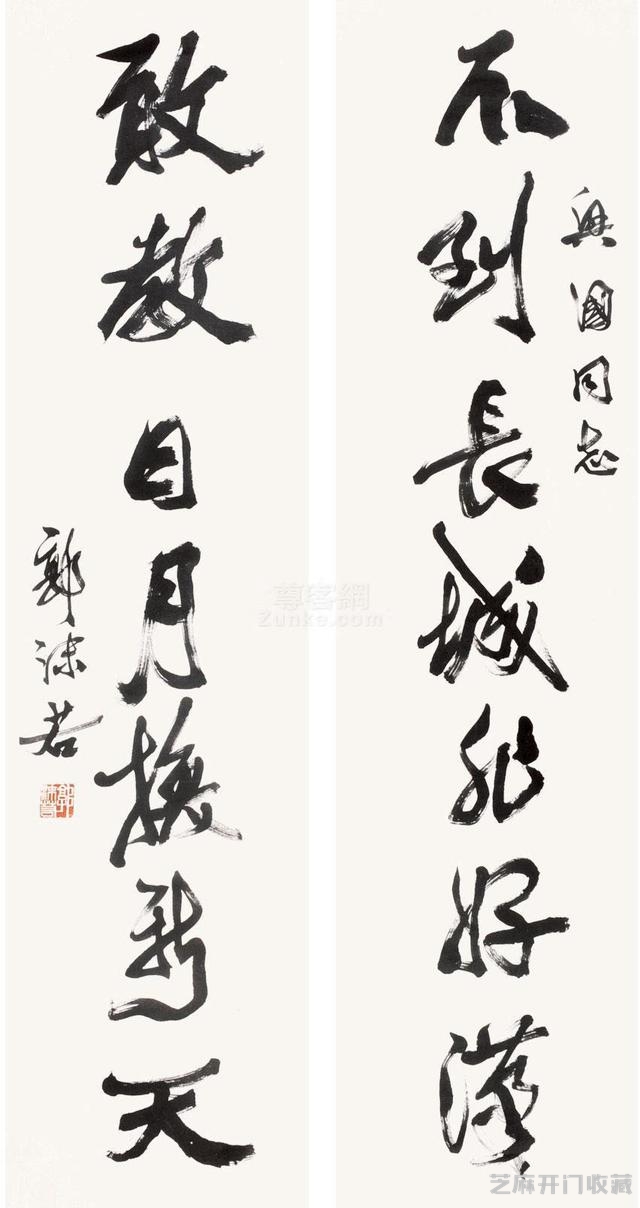 不到長城非好漢
興國同志
敢教日月換新天
郭沫若
郭沫若
尊客網
Zunke.com
芝麻开门收藏